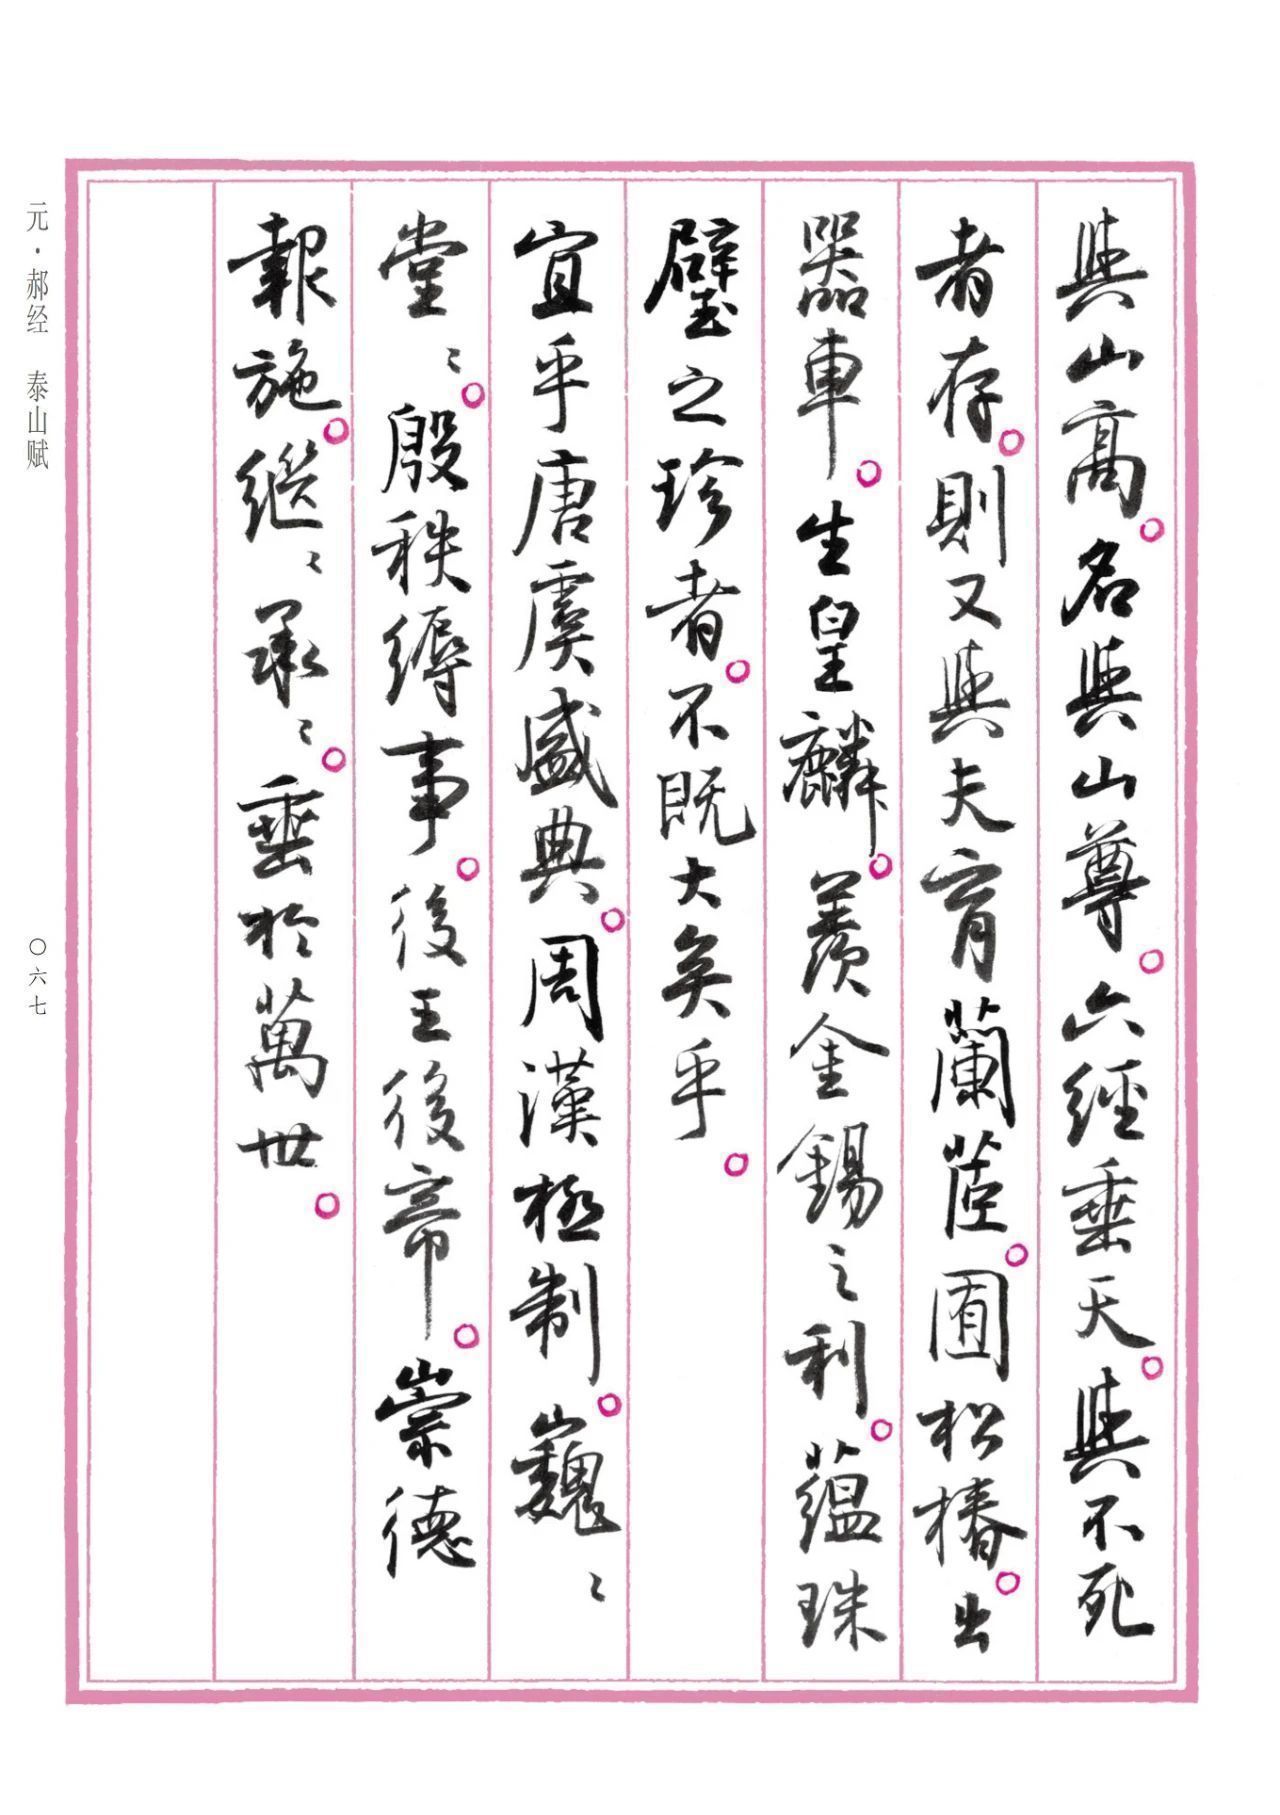 與山髙。名與山尊。六經垂天。與不死
者存。則又與夫育蘭茝。囿松椿。出
器車。生皇麟。羨金錫之利。藴珠
璧之珍者。不既大矣乎。
宜乎唐虞盛典。周漢極制。巍〻
堂〻。殷秩縟事。後王後帝。崇德
報施。繼〻承〻。垂於萬世。
元·郝经 泰山赋
〇六七